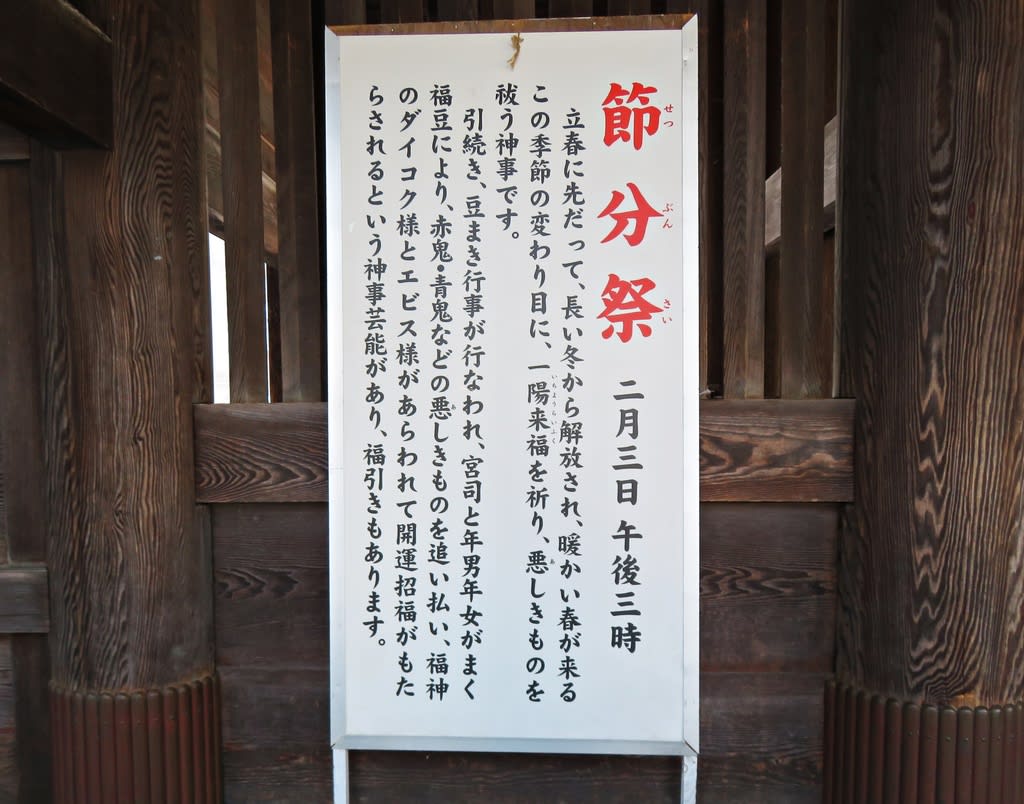 節分祭 二月三日 午後三時
せつ ぶん さい
立春に先だって、長い冬から解放され、暖かい春が来る
この季節の変わり目に、一陽来福を祈り、悪しきものを
いちようらいふく
あ
祓う神事です。
引続き、豆まき行事が行なわれ、宮司と年男年女がまく
福豆により、赤鬼・青鬼などの悪しきものを追い払い、福神
あ
のダイコク様とエビス様があらわれて開運招福がもた
らされるという神事芸能があり、福引きもあります。